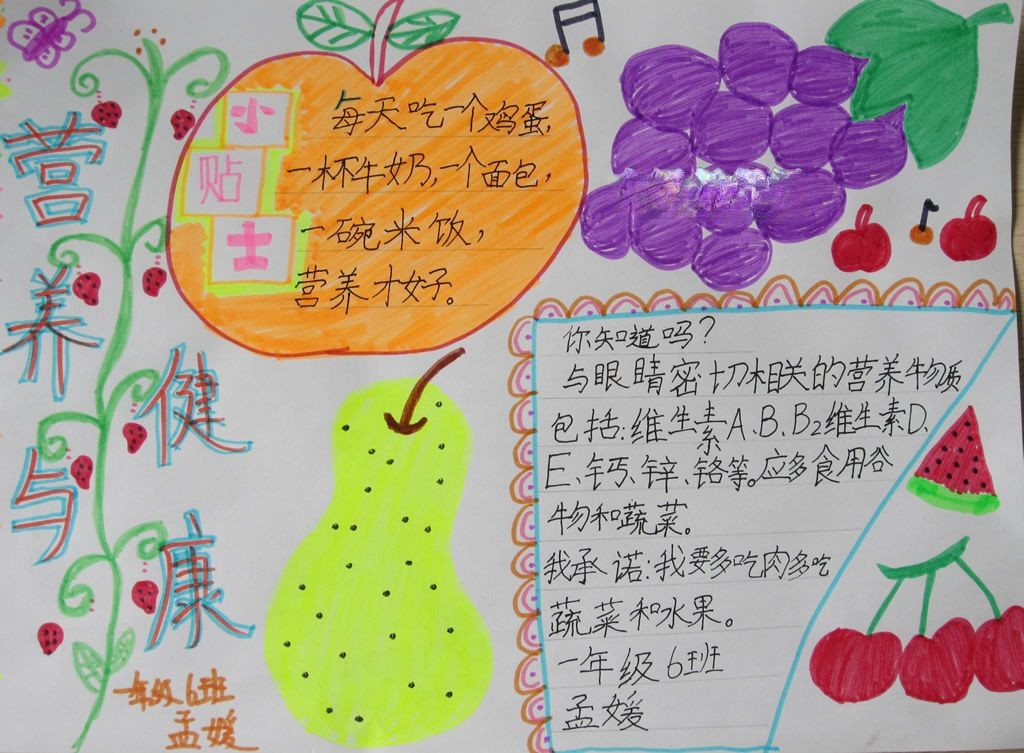 营养与
健康
小贴士
每天吃一个鸡蛋,
一杯牛奶,一个面包,
一碗米饭,
营养才好。
你知道吗?
与眼睛密切相关的营养物质
包括:维生素A、B、B2维生素D、
E、钙、锌、铬等。应多食用谷
物和蔬菜。
我承诺:我要多吃肉多吃
蔬菜和水果。
一年级6班
孟媛
一年级6班
孟媛